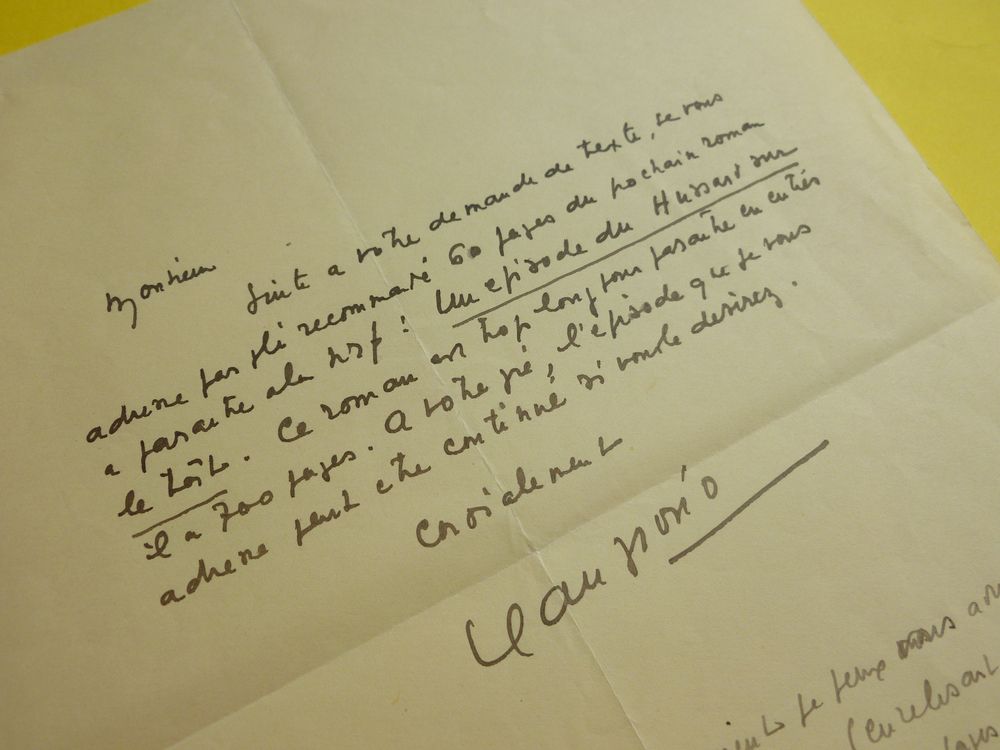 Monsieur
Suite a votre demande de texte, je vous
adresse par pli recommandé 60 pages du prochain roman
a paraitre a la nrf : Un episode du Hussard sur
le toît. Ce roman est trop long pour paraitre en entier
il a 700 pages. A votre gré, l'episode que je vous
adresse peut etre continué si vous le desirez.
Cordialement
Jean Giono
je peux vous
(en relisant